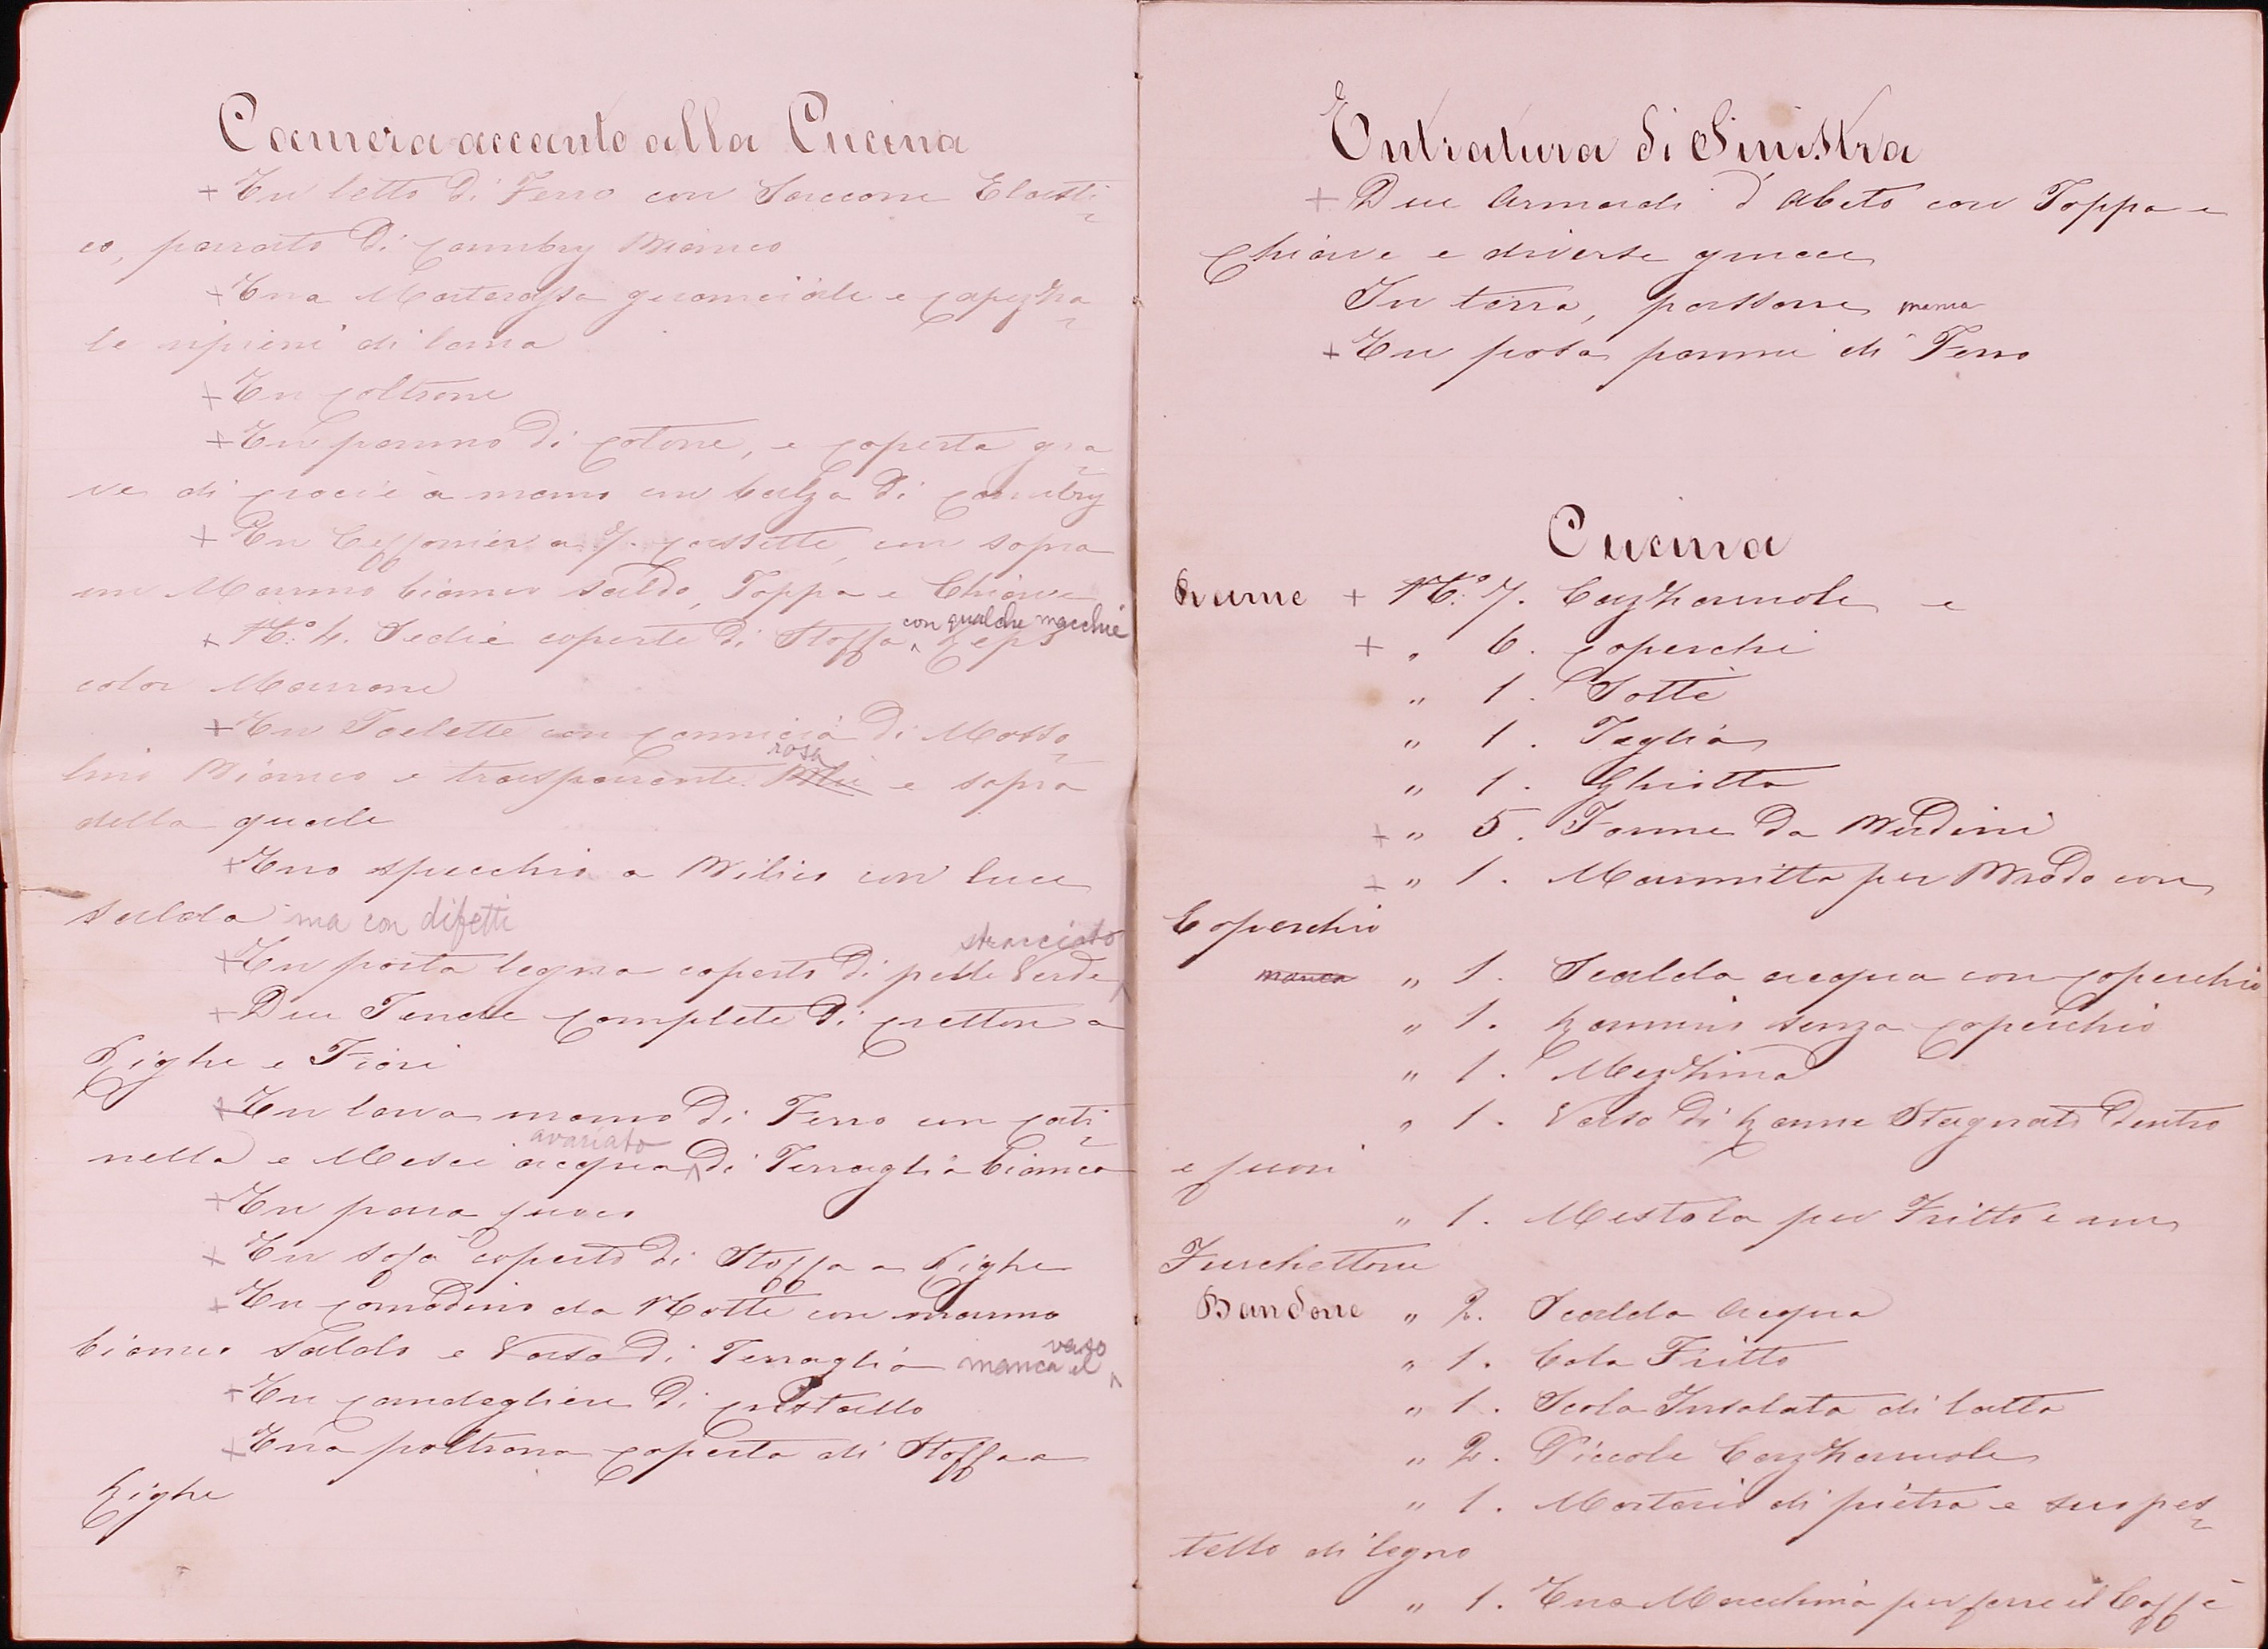 Camera accanto alla Cucina
+ Un letto di Ferro con Saccone Elasti-
co, parato di Cambry Bianco
+ Una Materassa guanciale e Capezza-
le ripieni di lana
+ Un Coltrone
+ Un panno di Cotone, e Coperta gra-
ve di Crocè a mano con balza di Cambry
+ Un Ceffonier a 7. Cassette, con sopra
un Marmo bianco saldo, Toppa e Chiave
con qualche macchie
+ N.º 4. Sedie coperte di Stoffa Reps
color Marrone
+ Un Toelette con Camicia di Musso-
rosa
lino Bianco e trasparente Blù e sopra
della quale
+ Uno specchio a Bilico con luce
salda ma con difetti
stracciato
+ Un porta legna coperto di pelle Verde
+ Due Tende Complete di Cretton a
Righe e Fiori
+ Un lava mano di Ferro con Cati-
avariato
nella e Mesci acqua di Terraglia bianca
+ Un para fuoco
+ Un sofà coperto di Stoffa a Righe
+ Un Comodino da Notte con marmo
vaso
bianco Saldo e Vaso di Terraglia manca il
+ Un Candegliere di Cristallo
+ Una poltrona Coperta di Stoffa a
Righe
Entratura di Sinistra
+ Due Armadi d'Abeto con Toppa e
Chiave e diverse grucce
In terra, passone manca
+ Un posa panni di Ferro
Cucina
Rame + N.º 7. Cazzaruole e
+ " 6. Coperchi
" 1. Sottè
" 1. Teglia
" 1. Ghiotta
+ " 5. Forme da Budini
+ " 1. Marmitta per Brodo con
Coperchio
manca " 1. Scalda acqua con Coperchio
" 1. Ramino senza Coperchio
" 1. Mezzina
" 1. Vaso di Rame Stagnato Dentro
e fuori
" 1. Mestola per Fritto e un
Furchettone
Bandone " 2. Scalda Acqua
" 1. Cola Fritto
" 1. Scola Insalata di latta
" 2. Piccole Cazzaruole
" 1. Mortaio di pietra e suo pes-
tello di legno
" 1. Una Macchina per fare il Caffè